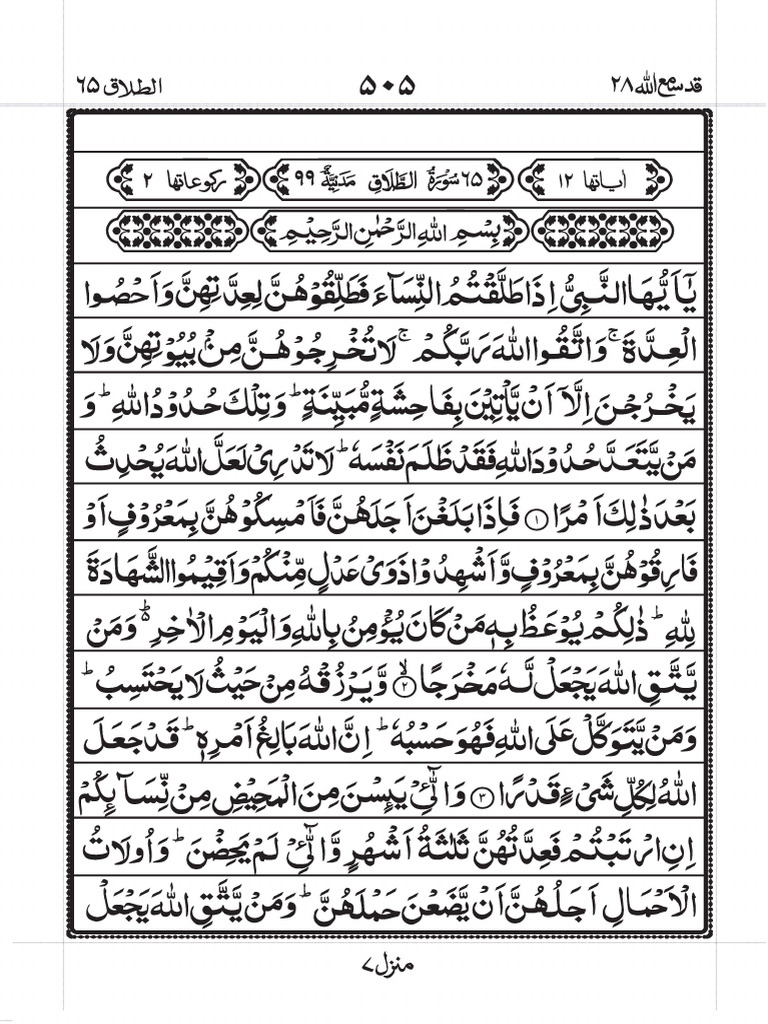 قد سمع الله ۲۸
۵۰۵
الطلاق ۶۵
اٰیاتها ۱۲
۶۵ سُوْرَةُ الطَّلَاقِ مَدَنِيَّةٌ ۹۹
رکوعاتها ۲
بِسْمِ اللهِ الرَّحْمٰنِ الرَّحِيْمِ
يٰۤاَيُّهَا النَّبِىُّ اِذَا طَلَّقْتُمُ النِّسَآءَ فَطَلِّقُوْهُنَّ لِعِدَّتِهِنَّ وَاَحْصُوا
الْعِدَّةَ ۚ وَاتَّقُوا اللهَ رَبَّكُمْ ۚ لَا تُخْرِجُوْهُنَّ مِنْۢ بُيُوْتِهِنَّ وَلَا
يَخْرُجْنَ اِلَّاۤ اَنْ يَّاْتِيْنَ بِفَاحِشَةٍ مُّبَيِّنَةٍ ؕ وَتِلْكَ حُدُوْدُ اللهِ ؕ وَ
مَنْ يَّتَعَدَّ حُدُوْدَ اللهِ فَقَدْ ظَلَمَ نَفْسَهٗ ؕ لَا تَدْرِىْ لَعَلَّ اللهَ يُحْدِثُ
بَعْدَ ذٰلِكَ اَمْرًا ۱ فَاِذَا بَلَغْنَ اَجَلَهُنَّ فَاَمْسِكُوْهُنَّ بِمَعْرُوْفٍ اَوْ
فَارِقُوْهُنَّ بِمَعْرُوْفٍ وَّاَشْهِدُوْا ذَوَىْ عَدْلٍ مِّنْكُمْ وَاَقِيْمُوا الشَّهَادَةَ
لِلهِ ؕ ذٰلِكُمْ يُوْعَظُ بِهٖ مَنْ كَانَ يُؤْمِنُ بِاللهِ وَالْيَوْمِ الْاٰخِرِ ۬ؕ وَمَنْ
يَّتَّقِ اللهَ يَجْعَلْ لَّهٗ مَخْرَجًا ۙ۲ وَّيَرْزُقْهُ مِنْ حَيْثُ لَا يَحْتَسِبُ ؕ
وَمَنْ يَّتَوَكَّلْ عَلَى اللهِ فَهُوَ حَسْبُهٗ ؕ اِنَّ اللهَ بَالِغُ اَمْرِهٖ ؕ قَدْ جَعَلَ
اللهُ لِكُلِّ شَىْءٍ قَدْرًا ۳ وَالّٰٓىِٔيْ يَئِسْنَ مِنَ الْمَحِيْضِ مِنْ نِّسَآئِكُمْ
اِنِ ارْتَبْتُمْ فَعِدَّتُهُنَّ ثَلٰثَةُ اَشْهُرٍ وَّالّٰٓىِٔيْ لَمْ يَحِضْنَ ؕ وَاُولَاتُ
الْاَحْمَالِ اَجَلُهُنَّ اَنْ يَّضَعْنَ حَمْلَهُنَّ ؕ وَمَنْ يَّتَّقِ اللهَ يَجْعَلْ
منزل ۷